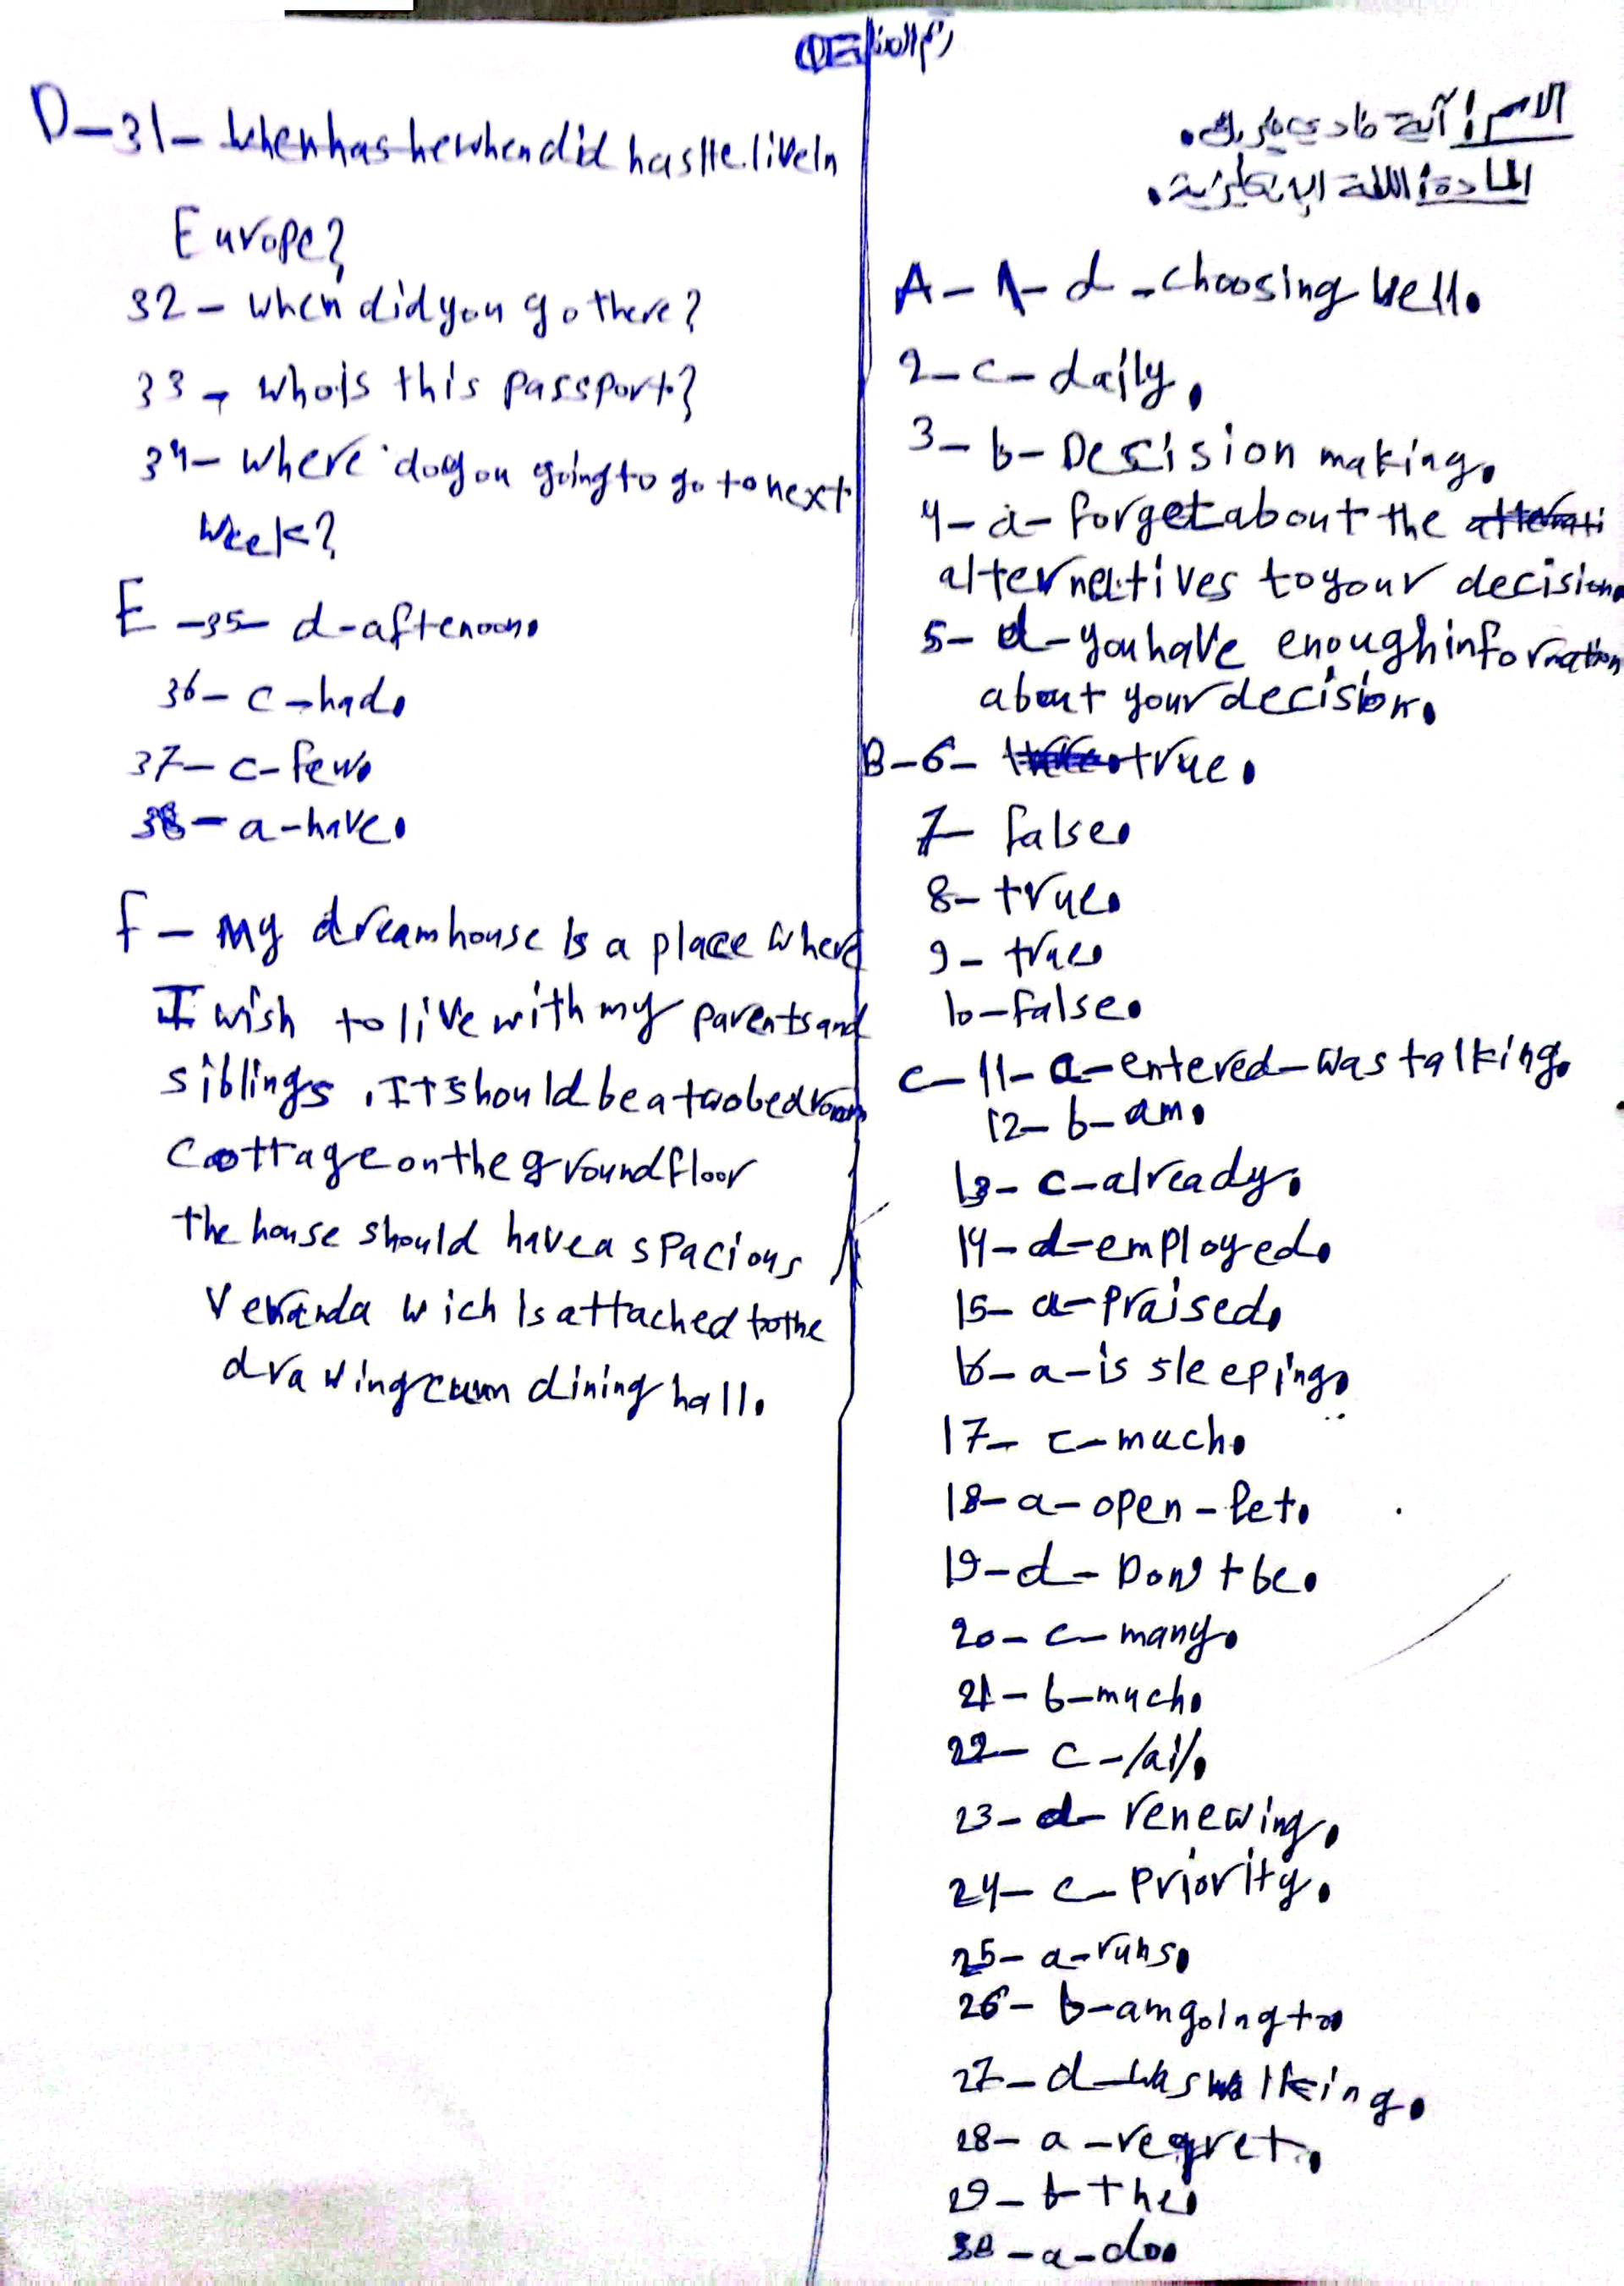 الاسم: آية فادي
المادة: اللغة الإنكليزية.
A-1-d-choosing well.
2-c-daily.
3-b-Descision making.
4-a-forget about the
alternatives to your decision.
5-d-you have enough information
about your decision.
B-6-true.
7-false.
8-true.
9-true.
10-false.
C-11-a-entered-was talking.
12-b-am.
13-c-already.
14-d-employed.
15-a-praised.
16-a-is sleeping.
17-c-much.
18-a-open-let.
19-d-Don't be.
20-c-many.
21-b-much.
22-c-/ai/.
23-d-renewing.
24-c-Priority.
25-a-runs.
26-b-am going to.
27-d-was walking.
28-a-regret.
29-b-the.
30-a-do.
D-31-when has he when did has He live In
Europe?
32-when did you go there?
33-who is this passport?
34-where do you going to go to next
week?
E-35-d-aftenoon.
36-c-had.
37-c-few.
38-a-have.
F-My dream house is a place where
I wish to live with my parents and
siblings. It should be a two bedroom
Cottage on the ground floor
the house should have a spacious
Veranda wich Is attached to the
drawing cum dining hall.